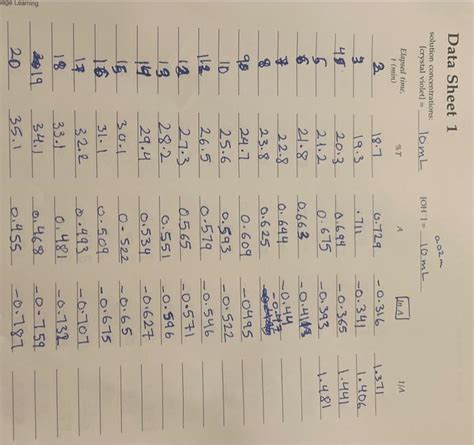 Data Sheet 1
solution concentrations:
[crystal violet] = 10mL [OH-] = 0.02M 10mL
Elapsed time, t (min) %T A ln A 1/A
2 18.7 0.729 -0.316 1.371
3 19.3 .711 -0.341 1.406
4 20.3 0.694 -0.365 1.441
5 21.2 0.675 -0.393 1.481
6 21.8 0.663
7 22.8 0.644 -0.44
8 23.8 0.625 -0.47
9 24.7 0.609 -0495
10 25.6 0.593 -0.522
11 26.5 0.579 -0.546
12 27.3 0.565 -0.571
13 28.2 0.551 -0.596
14 29.4 0.534 -0.627
15 30.1 0.522 -0.65
16 31.1 0.509 -0.675
17 32.2 0.493 -0.707
18 33.1 0.481 -0.732
19 34.1 0.468 -0.759
20 35.1 0.455 -0.787
Learning